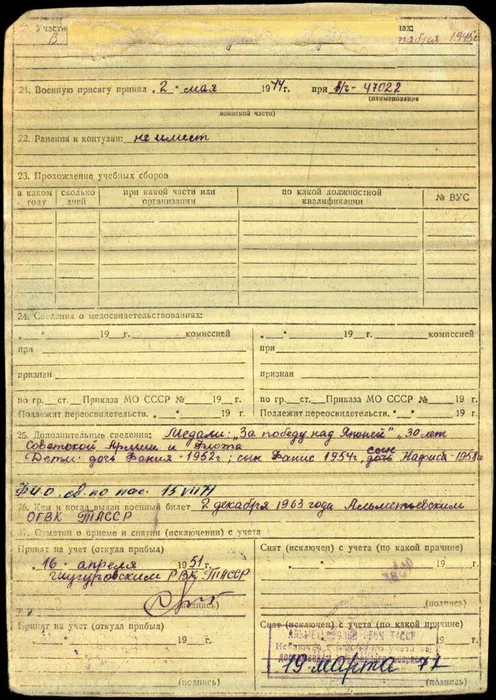 Участи
В
нах:
ября 1945г.
21. Военную присягу принял „2" мая 1944г. при в/ч-47022
(наименование
воинской части)
22. Ранения и контузии: не имеет
23. Прохождение учебных сборов
в каком году
сколько дней
при какой части или организации
по какой должностной квалификации
№ ВУС
24. Сведения о медосвидетельствованиях:
„ " 19 г. комиссией
„ " 19 г. комиссией
при
при
признан
признан
по гр. ст. Приказа МО СССР № 19 г.
по гр. ст. Приказа МО СССР № 19 г.
Подлежит переосвидетельств. „ " 19 г
Подлежит переосвидетельств. „ " 19 г
25. Дополнительные сведения: Медали: „За победу над Японией" „30 лет
Советской Армии и Флота
Дети: дочь Фания-1952г; сын Фанис 1954г, сын дочь Нафися-1958г
Ф.И.О. св. по пас. 15 VII 71
26. Кем и когда выдан военный билет 2 декабря 1963 года Альметьевским
ОГВК ТАССР
27. Отметки о приеме и снятии (исключении) с учета
Принят на учет (откуда прибыл)
Снят (исключен) с учета (по какой причине)
16 апреля 1951г.
РВК ТАССР
(подпись)
(подпись)
Принят на учет (откуда прибыл)
Снят (исключен) с учета (по какой причине)
„ " 19 г.
АЛЬМЕТЬЕВСКИЙ ОГВК ТАССР
Исключен с учета
19 марта 77
(подпись)
(подпись)